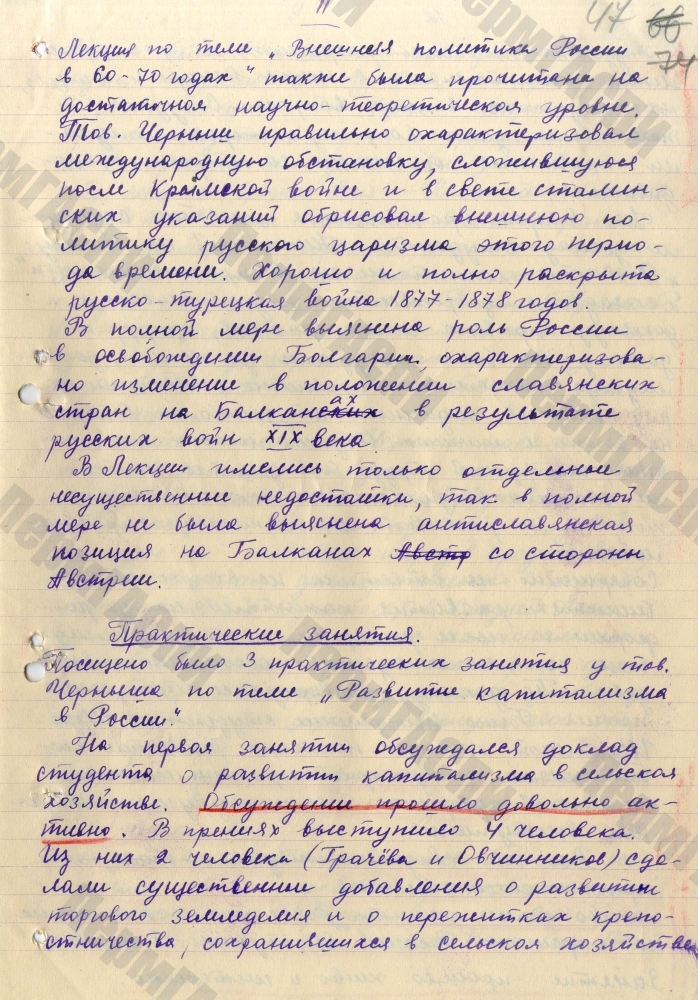 11
47 66
74
Лекция по теме „Внешняя политика России
в 60-70 годах" также была прочитана на
достаточном научно-теоретическом уровне.
Тов. Черныш правильно охарактеризовал
международную обстановку, сложившуюся
после Крымской войне и в свете сталин-
ских указаний обрисовал внешнюю по-
литику русского царизма этого перио-
да времени. Хорошо и полно раскрыта
русско-турецкая война 1877-1878 годов.
В полной мере выяснена роль России
в освобождении Болгарии, охарактеризова-
но изменение в положении славянских
стран на Балканских ах в результате
русских войн XIX века
В Лекции имелись только отдельные
несущественные недостатки, так в полной
мере не была выяснена антиславянская
позиция на Балканах Австр со стороны
Австрии.
Практические занятия.
Посещено было 3 практических занятия у тов.
Черныша по теме „Развитие капитализма
в России".
На первом занятии обсуждался доклад
студента о развитии капитализма в сельском
хозяйстве. Обсуждение прошло довольно ак-
тивно. В прениях выступило 4 человека.
Из них 2 человека (Грачёва и Овчинников) сде-
лали существенные добавления о развитии
торгового земледелия и о пережитках крепо-
стничества, сохранившихся в сельском хозяйстве
ПермГАСПИ